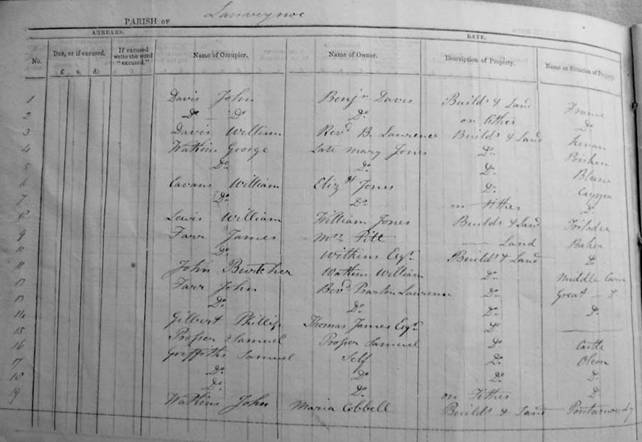 PARISH OF Lanveynoe
ARREARS. RATE.
No. Due, or if excused. If excused write the word "excused." Name of Occupier. Name of Owner. Description of Property. Name or Situation of Property
£ s. d.
1 Davis John Benjn Davis Builds & Land
2 Do Do Do on Tithes Do
3 Davis William Revd B. Lawrence Builds & Land
4 Watkin George Late Mary Jones Do
5 Do Do Do Blaen
6 Cavans William Elizth Jones Do
7 Do Do on Tithes Do
8 Lewis William William Jones Builds & Land
9 Farr James Mrs Pitt Land
Do Watkins Esqr Builds & Land Do
John Butcher Watkin William Do Middle
Farr John Revd Lawrence Do Great
Do Do Do Do
14 Gilbert Phillip Thomas James Esqr Do
15 Prosser Samuel Prosser Samuel Do Castle
16 Griffiths Samuel Self Do Olcon
17 Do Do Do Do
18 Do Do on Tithes Do
19 Watkins John Maria Cobbell Builds & Land